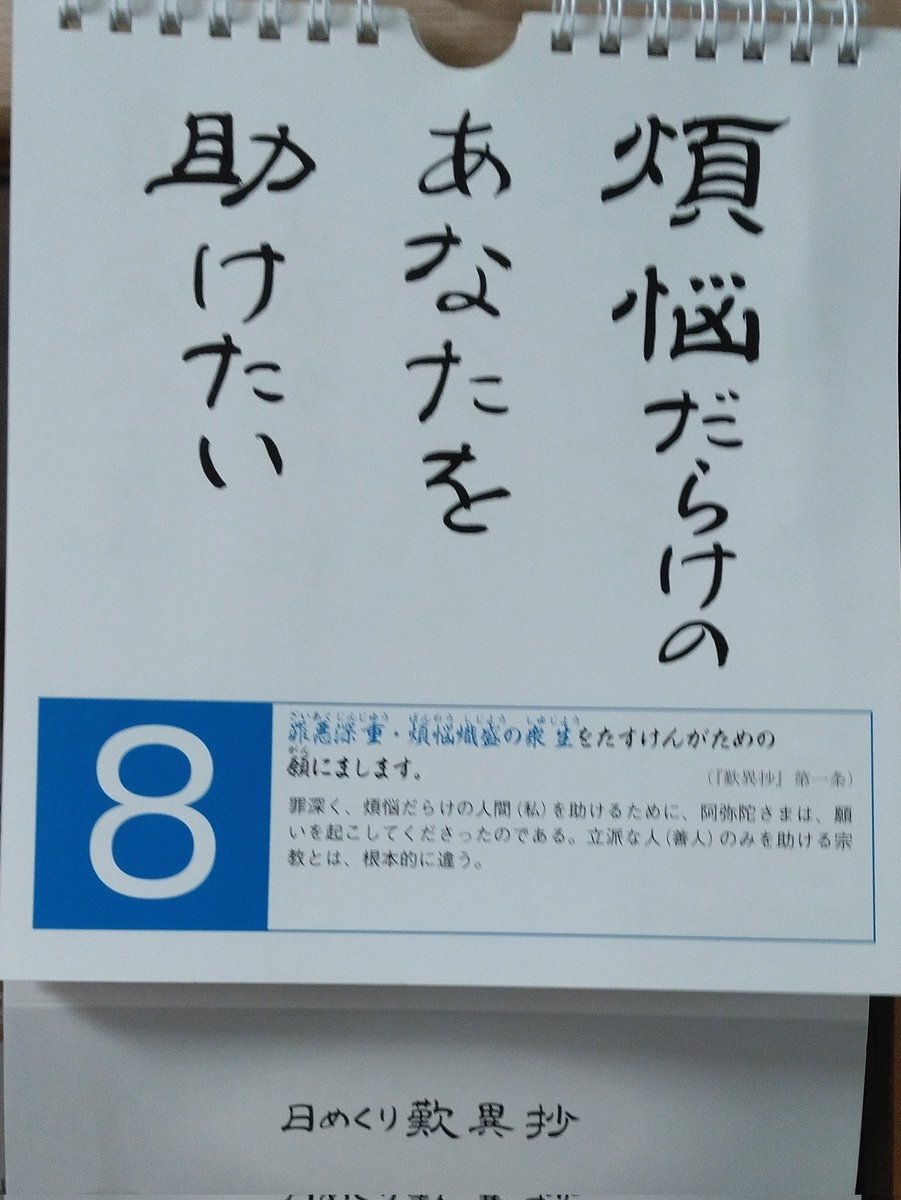 煩悩だらけの
あなたを
助けたい
8
罪悪深重・煩悩熾盛の衆生をたすけんがための
願にまします。
(『歎異抄』第一条)
罪深く、煩悩だらけの人間(私)を助けるために、阿弥陀さまは、願
いを起こしてくださったのである。立派な人(善人)のみを助ける宗
教とは、根本的に違う。
日めくり歎異抄